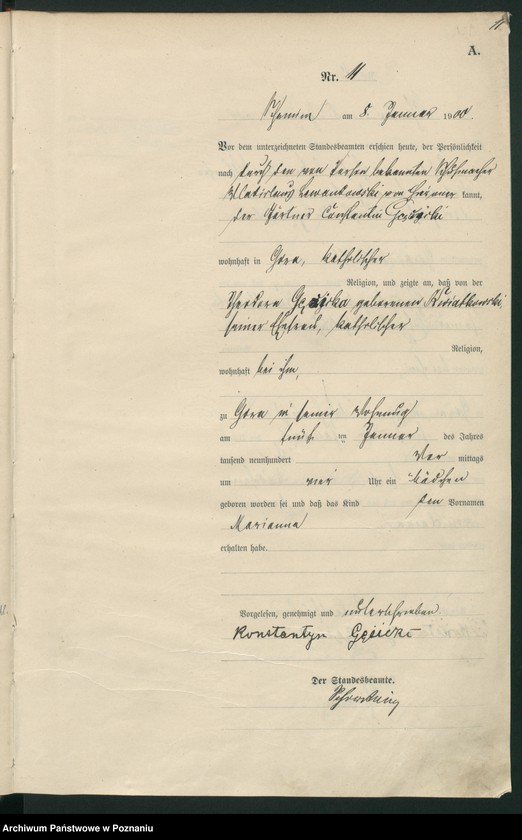 11
A.
Nr. 11
am 8. Januar 1900.
Vor dem unterzeichneten Standesbeamten erschien heute, der Persönlichkeit
nach durch den von Person bekannten Schuhmacher
kannt,
der Gärtner Constantin
wohnhaft in Gora, katholischer
Religion, und zeigte an, daß von der
Theodora geborenen Kwiatkowski,
seiner Ehefrau, katholischer
Religion,
wohnhaft bei ihm,
zu Gora in seiner Wohnung
am fünf ten Januar des Jahres
tausend neunhundert Vor mittags
um vier Uhr ein Mädchen
geboren worden sei und daß das Kind den Vornamen
Marianna
erhalten habe.
Vorgelesen, genehmigt und unterschrieben
Konstantyn
Der Standesbeamte.
Archiwum Państwowe w Poznaniu